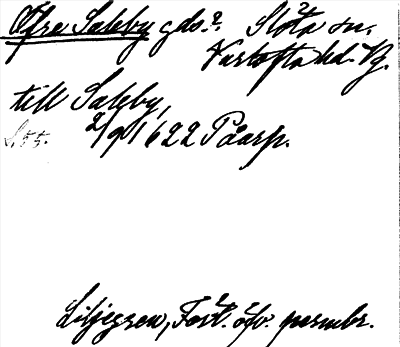 Öfre Saleby gds.? Slöta sn.
Vartofta hd. Vg.
till Saleby,
2/9 1622 Påarp.
L. 55.
Liljegren, Fört. öfv. permbr.